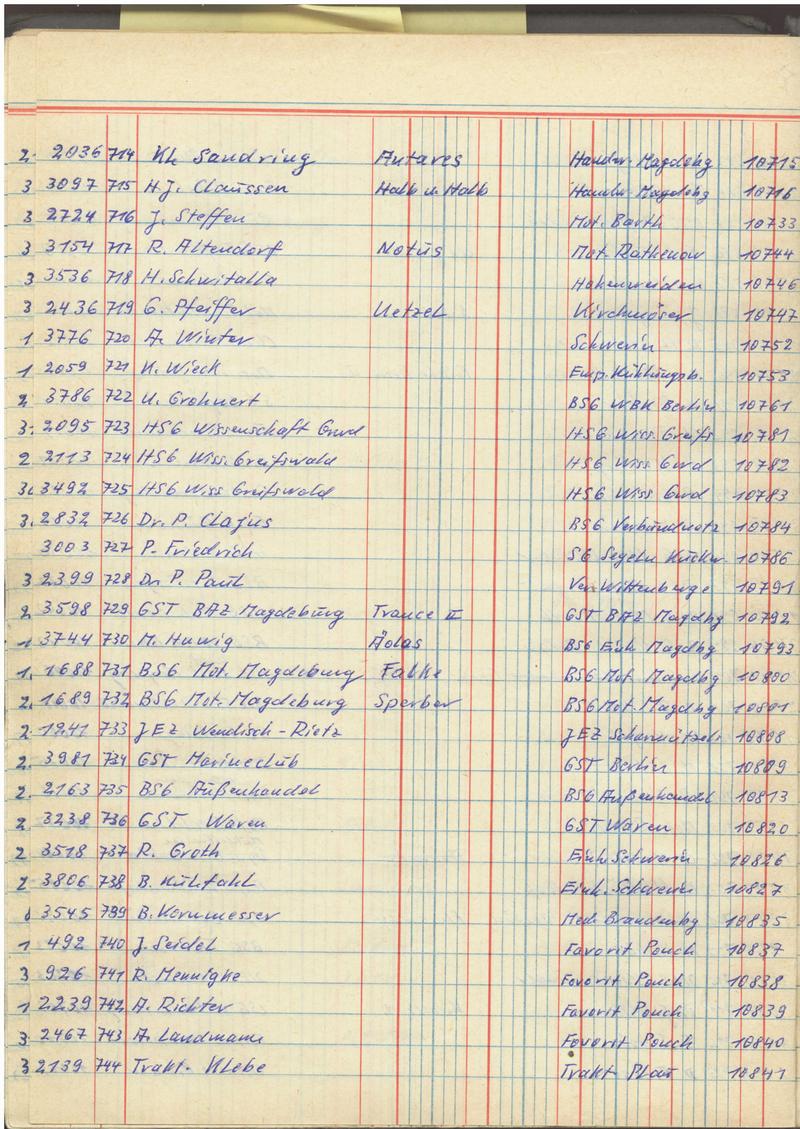 2 2036 714 Kl. Sandring Antares Handw. Magdebg 10715
3 3097 715 H.J. Claussen Halb u. Halb Handw. Magdebg 10716
3 2724 716 J. Steffen Mot. Barth 10733
3 3154 717 R. Altendorf Notus Mot. Rathenow 10744
3 3536 718 H. Schwitalla Hohenweiden 10746
3 2436 719 G. Pfeiffer Uetzel Kirchmöser 10747
1 3776 720 A. Winter Schwerin 10752
1 2059 721 K. Wieck Emp. Kühlungsb. 10753
2 3786 722 U. Grohnert BSG WBK Berlin 10761
3 2095 723 HSG Wissenschaft Grwd HSG Wiss. Greifs 10781
2 2113 724 HSG Wiss. Greifswald HSG Wiss Grwd 10782
3 3492 725 HSG Wiss Greifswald HSG Wiss Grwd 10783
3 2832 726 Dr. P. Clajus BSG Verbundnetz 10784
3003 727 P. Friedrich SG Segeln 10786
3 2399 728 Dr. P. Paul Ver. Wittenberge 10791
2 3598 729 GST BAZ Magdeburg Trance II GST BAZ Magdbg 10792
1 3744 730 M. Huwig Äolas BSG Einh Magdbg 10793
1 1688 731 BSG Mot. Magdeburg Falke BSG Mot. Magdbg 10800
2 1689 732 BSG Mot. Magdeburg Sperber BSG Mot. Magdbg 10801
2 1241 733 JEZ Wendisch-Rietz JEZ Scharmützels. 10808
2 3981 734 GST Marineclub GST Berlin 10809
2 2163 735 BSG Außenhandel BSG Außenhandel 10813
2 3238 736 GST Waren GST Waren 10820
2 3518 737 R. Groth Einh. Schwerin 10826
2 3806 738 B. Kühfahl Einh. Schwerin 10827
3545 739 B. Kornmesser Med. Brandenbg 10835
1 492 740 J. Seidel Favorit Pouch 10837
3 926 741 R. Mennigke Favorit Pouch 10838
1 2239 742 A. Richter Favorit Pouch 10839
3 2467 743 A. Landmann Favorit Pouch 10840
3 2139 744 Trakt. Klebe Trakt. Plau 10841